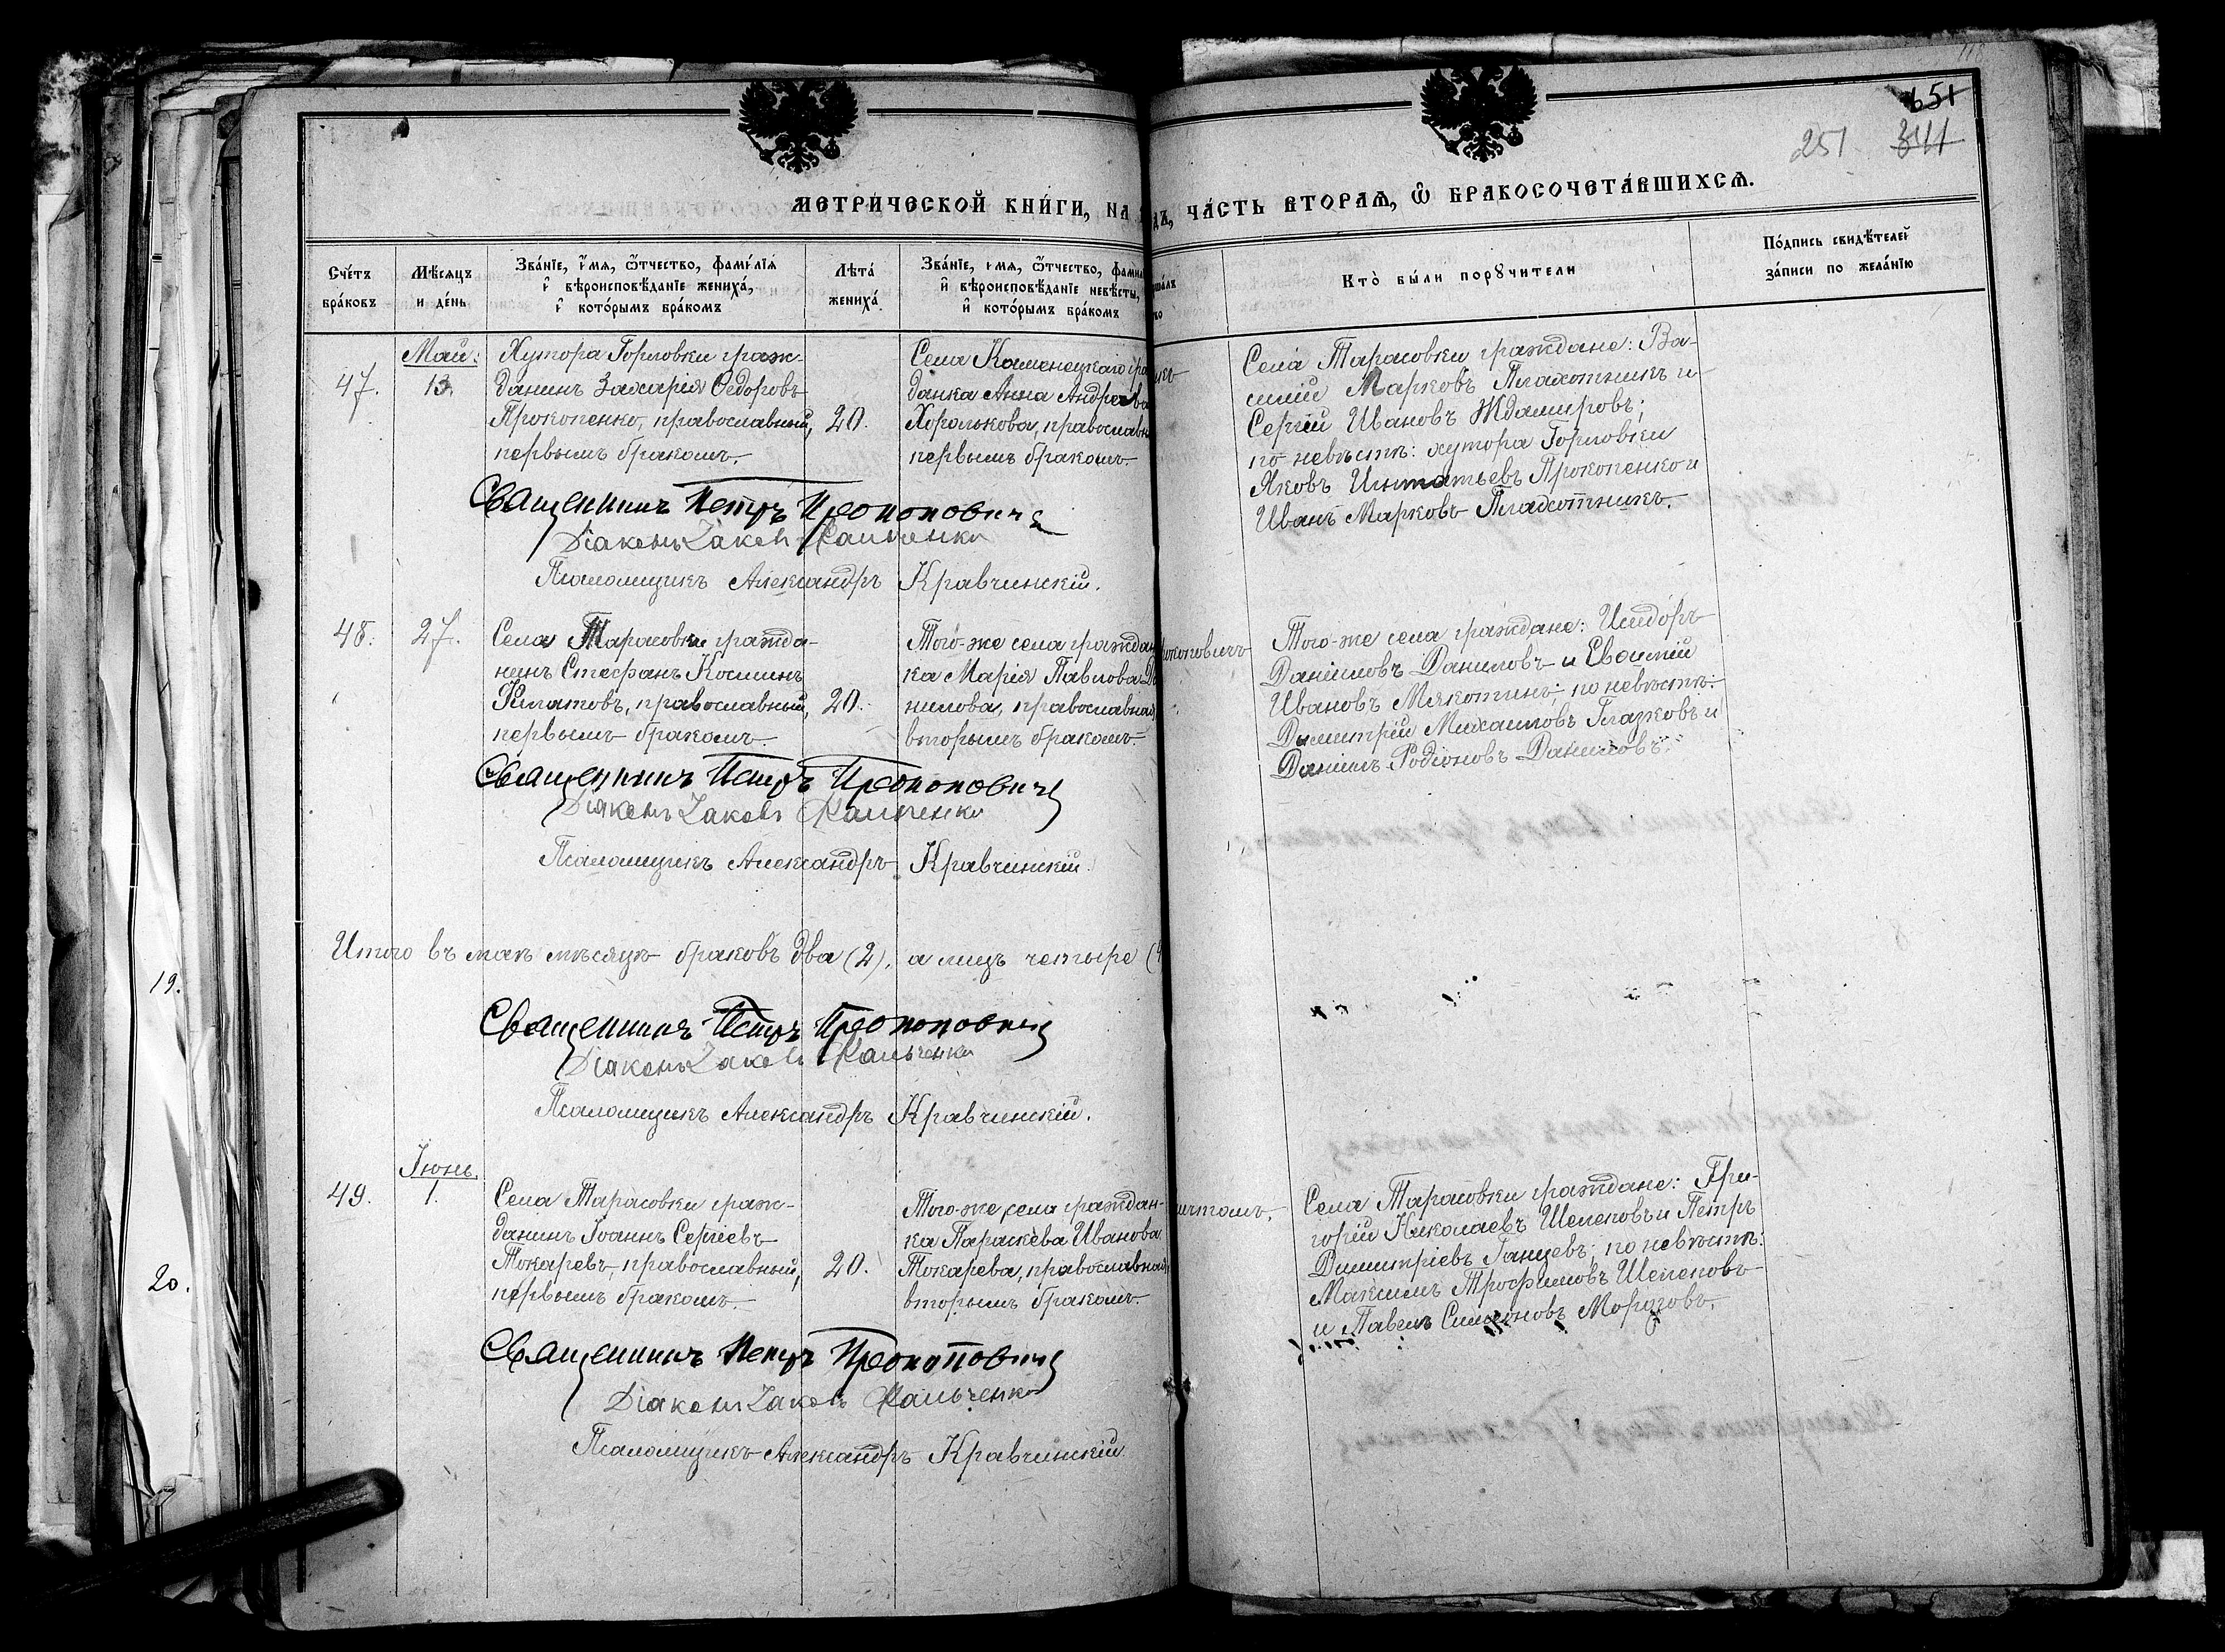 651
251 341
МЕТРИЧЕСКОЙ КНИГИ, НА
ДЪ, ЧАСТЬ ВТОРАЯ, Ѡ БРАКОСОЧЕТАВШИХСЯ.
Счетъ браковъ
Мѣсяцъ и день
Званіе, имя, ѿтчество, фамилія
и вѣроисповѣданіе жениха,
и которымъ бракомъ
Лѣта жениха
Званіе, имя, ѿтчество, фами
и вѣроисповѣданіе невѣсты,
и которымъ бракомъ
Кто были порꙋчители
Подпись свидѣтелей
записи по желанію
47.
Май:
13.
Хутора Горловки граж-
данинъ Захарія Ѳедоровъ
Прокопенко, православный,
первымъ бракомъ.
20.
Села Каменецкаго гра
данка Анна Андреева
Хоролькова, православн
первымъ бракомъ.
Села Тарасовки граждане: Ва-
силій Марковъ Плахотникъ и
Сергій Ивановъ Ждамировъ;
по невѣстѣ: хутора Горловки
Яковъ Игнатьевъ Прокопенко и
Иванъ Марковъ Плахотникъ.
Священникъ Петръ Прокоповичъ
Діаконъ Іаковъ Кальченко
Псаломщикъ Александръ Кравчинскій.
48.
27.
Села Тарасовки гражда-
нинъ Стефанъ Косминъ
Филатовъ, православный,
первымъ бракомъ.
20.
Того-же села граждан
ка Марія Павлова Да
нилова, православная,
вторымъ бракомъ.
Того-же села граждане: Исидоръ
Даніиловъ Даниловъ и Василій
Ивановъ Мякотинъ; по невѣстѣ:
Димитрій Михаиловъ Глазковъ и
Даніилъ Родіоновъ Даниловъ.
Священникъ Петръ Прокоповичъ
Діаконъ Іаковъ Кальченко
Псаломщикъ Александръ Кравчинскій.
Итого въ маѣ мѣсяцѣ браковъ два (2), а лицъ четыре (4
Священникъ Петръ Прокоповичъ
Діаконъ Іаковъ Кальченко
Псаломщикъ Александръ Кравчинскій.
49.
Іюнь.
1.
Села Тарасовки граж-
данинъ Іоаннъ Сергіевъ
Токаревъ, православный,
первымъ бракомъ.
20.
Того-же села граждан-
ка Параскева Иванова
Токарева, православная,
вторымъ бракомъ.
Села Тарасовки граждане: Гри-
горій Николаевъ Шелеповъ и Петръ
Димитріевъ Ганцевъ; по невѣстѣ:
Максимъ Трофимовъ Шелеповъ
и Павелъ Симеоновъ Морозовъ.
Священникъ Петръ Прокоповичъ
Діаконъ Іаковъ Кальченко
Псаломщикъ Александръ Кравчинскій
19.
20.